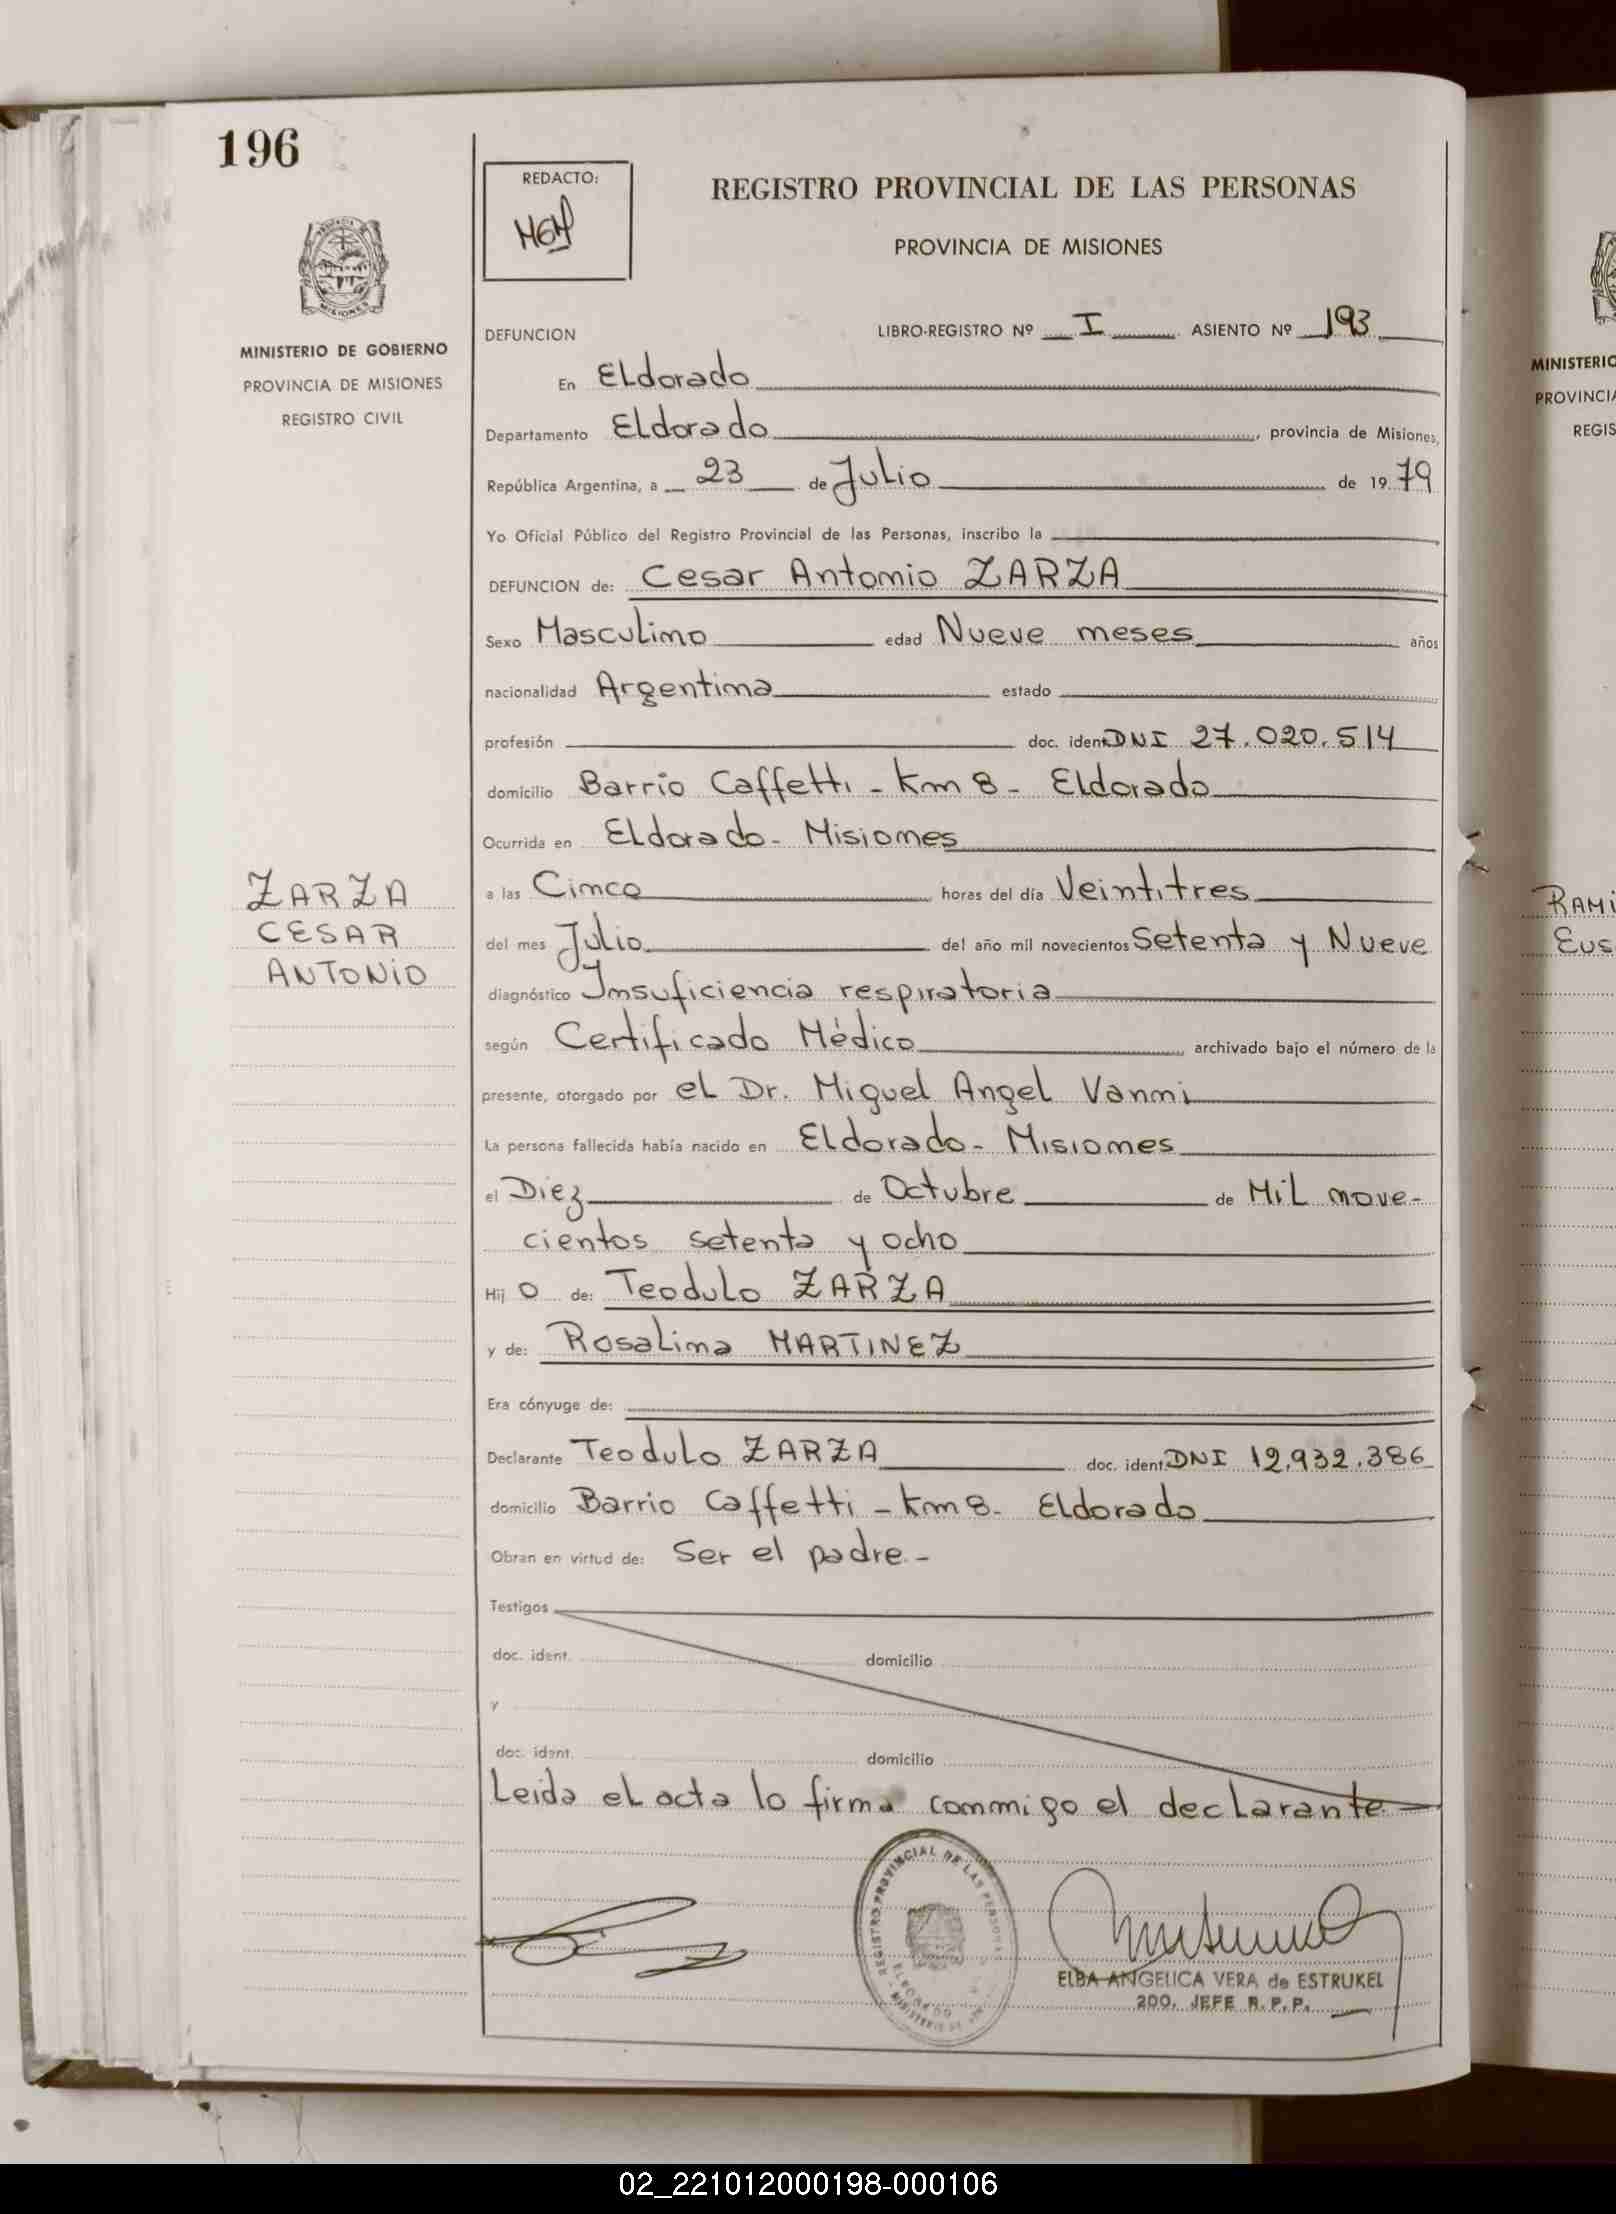 196
REDACTO:
MGM
REGISTRO PROVINCIAL DE LAS PERSONAS
PROVINCIA DE MISIONES
MISIONES
MINISTERIO DE GOBIERNO
PROVINCIA DE MISIONES
REGISTRO CIVIL
DEFUNCION LIBRO-REGISTRO Nº I ASIENTO Nº 193
En Eldorado
Departamento Eldorado, provincia de Misiones,
República Argentina, a 23 de Julio de 1979
Yo Oficial Público del Registro Provincial de las Personas, inscribo la
DEFUNCION de: Cesar Antonio ZARZA
Sexo Masculino edad Nueve meses años
nacionalidad Argentina estado
profesión doc. ident. DNI 27.020.514
domicilio Barrio Caffetti - Km 8 - Eldorado
Ocurrida en Eldorado - Misiones
a las Cinco horas del día Veintitres
del mes Julio del año mil novecientos Setenta y Nueve
diagnóstico Insuficiencia respiratoria
según Certificado Médico archivado bajo el número de la
presente, otorgado por el Dr. Miguel Angel Vanni
La persona fallecida había nacido en Eldorado - Misiones
el Diez de Octubre de Mil nove-
cientos setenta y ocho
Hij o de: Teodulo ZARZA
y de: Rosalina MARTINEZ
Era cónyuge de:
Declarante Teodulo ZARZA doc. ident. DNI 12.932.386
domicilio Barrio Caffetti - Km 8 - Eldorado
Obran en virtud de: Ser el padre.-
Testigos
doc. ident. domicilio
y
doc. ident. domicilio
Leida el acta lo firma conmigo el declarante.
ZARZA
CESAR
ANTONIO
REGISTRO PROVINCIAL DE LAS PERSONAS
ELDORADO
MINISTERIO DE
ELBA ANGELICA VERA de ESTRUKEL
2DO. JEFE R.P.P.
MINISTERIO
PROVINCIA
REGIS
RAMI
EUS
02_221012000198-000106